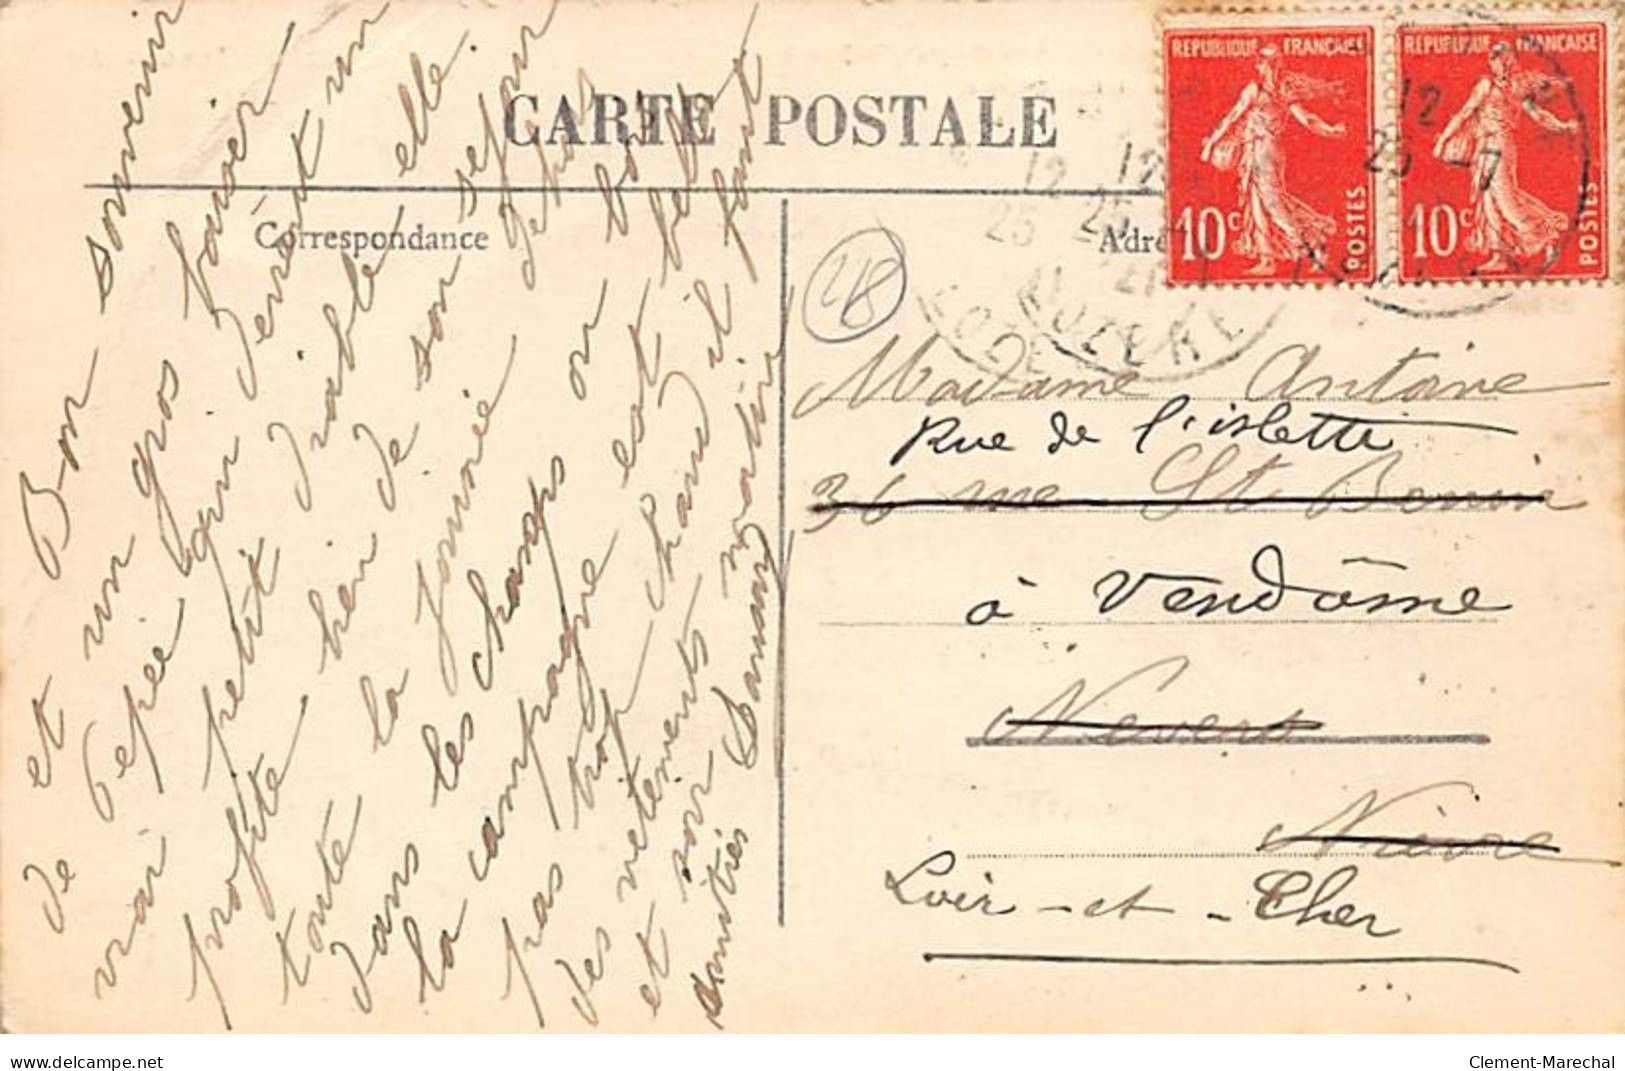 CARTE POSTALE
Correspondance
Adre
REPUBLIQUE FRANCAISE
10c POSTES
REPUBLIQUE FRANCAISE
10c POSTES
12
25 -7
12
25
12
25
LOZERE
48
Bon souvenir
et un gros baiser
de Pepée qui devient un
vrai petit diable elle
profite bien de son séjour
toute la journée dehors
dans les champs on
la campagne est belle
pas trop chaud il faut
des vetements
et soir matin
amitiés
Madame Antoine
Rue de l'islette
36 rue St Benin
à Vendôme
Nevers
Nièvre
Loir-et-Cher
delcampe.net
Clement-Marechal